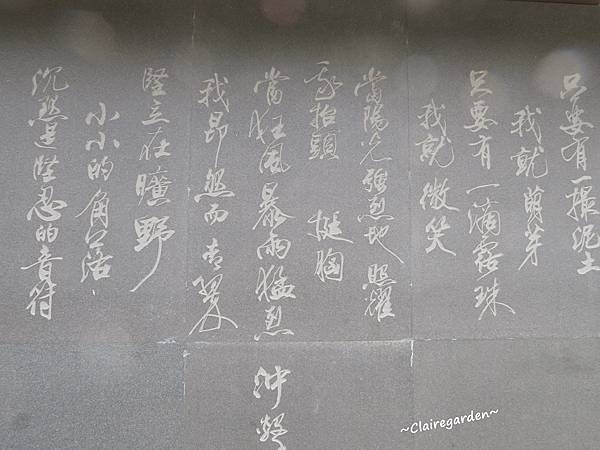 只要有一撮泥土
我就萌芽
只要有一滴露珠
我就微笑
當陽光強烈地照耀
我抬頭 挺胸
當狂風暴雨猛烈沖擊
我昂然而青翠
堅立在曠野
小小的角落,
沉默是堅忍的音符
~Clairegarden~